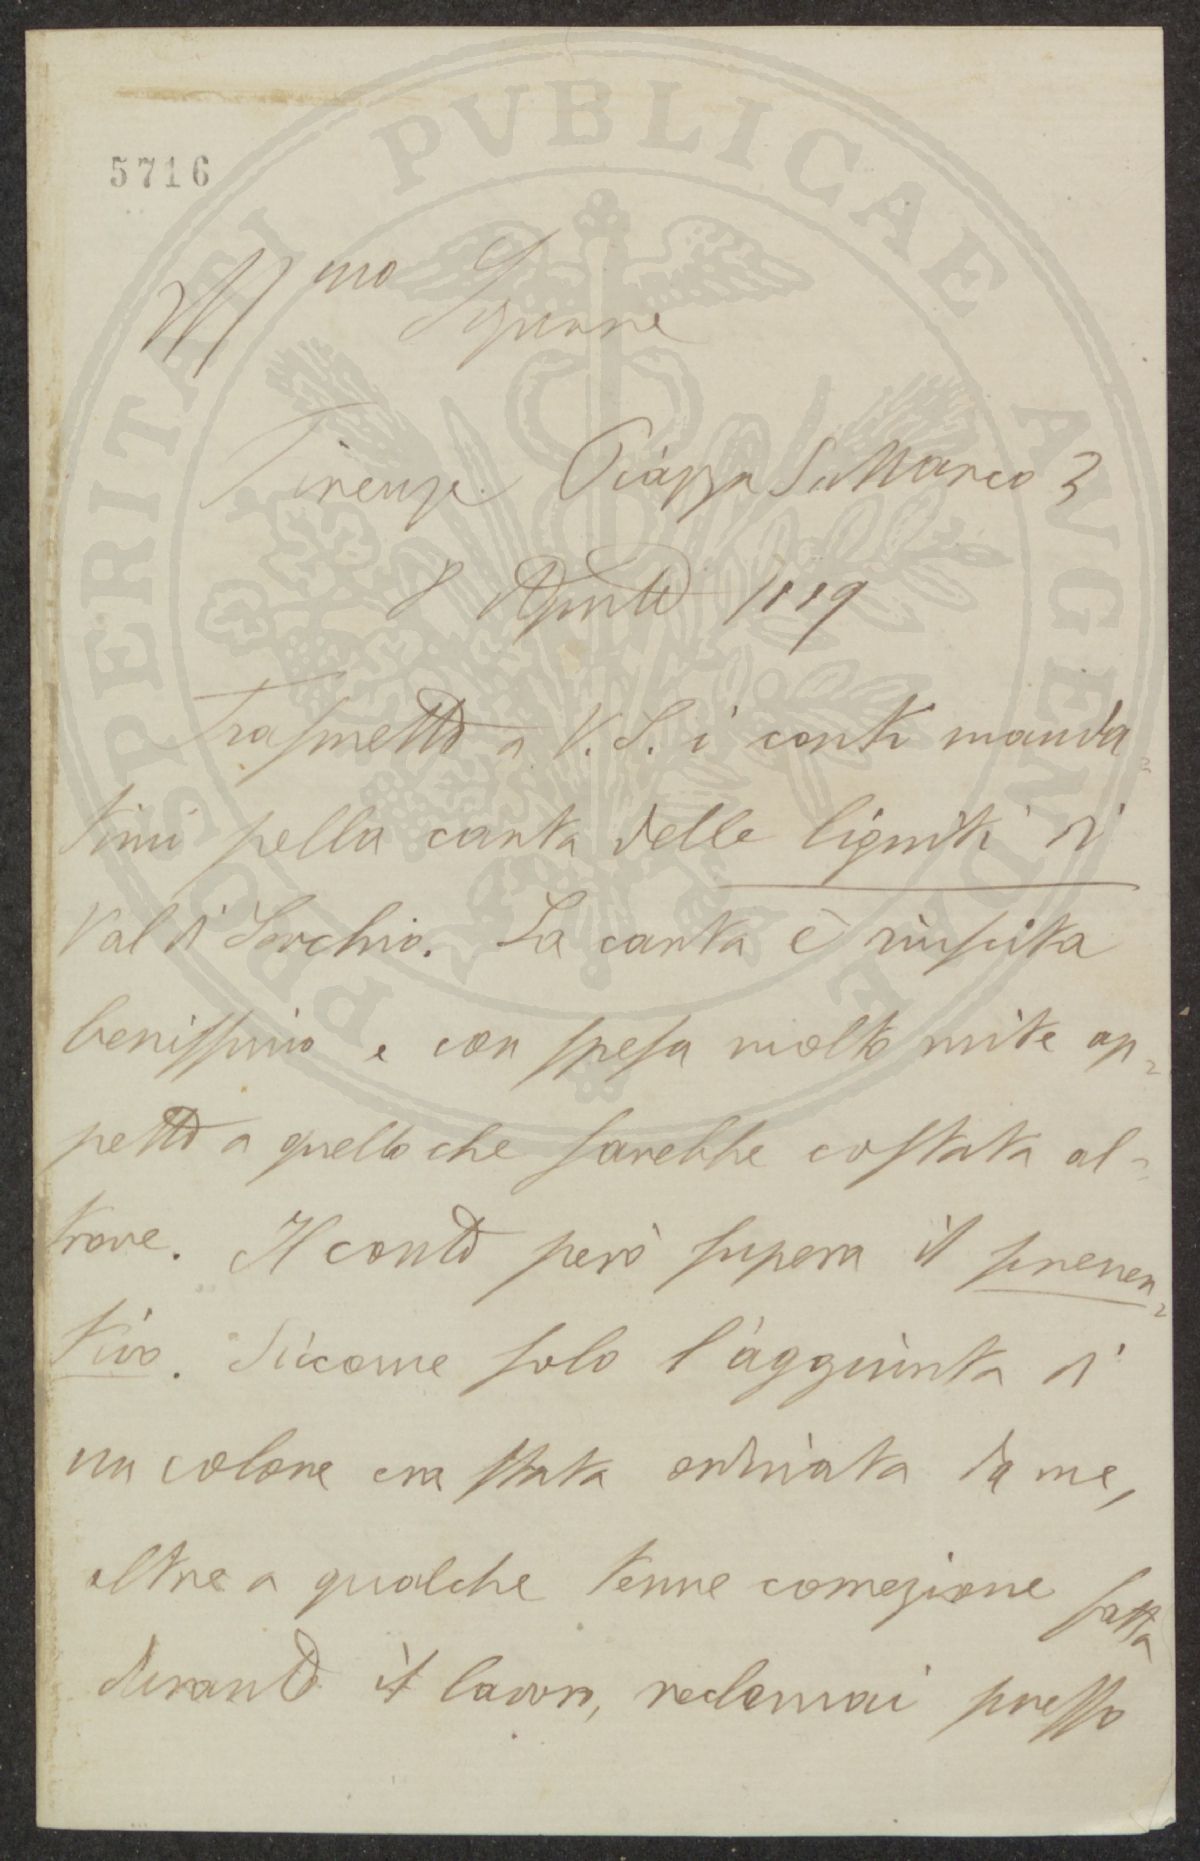 PROSPERITATI PVBLICAE AVGENDAE
5716
Ill.mo Signore
Firenze Piazza S. Marco 3
8 Agosto 1889
Trasmetto a V. S. i conti manda=
timi pella carta delle ligniti di
Val di Serchio. La carta è riuscita
benissimo e con spesa molto mite ap=
petto a quello che sarebbe costata al=
trove. Il conto però supera il preven=
tivo. Siccome solo l'aggiunta di
un colore era stata ordinata da me,
oltre a qualche tenue correzione fatta
durante il lavoro, reclamai presso